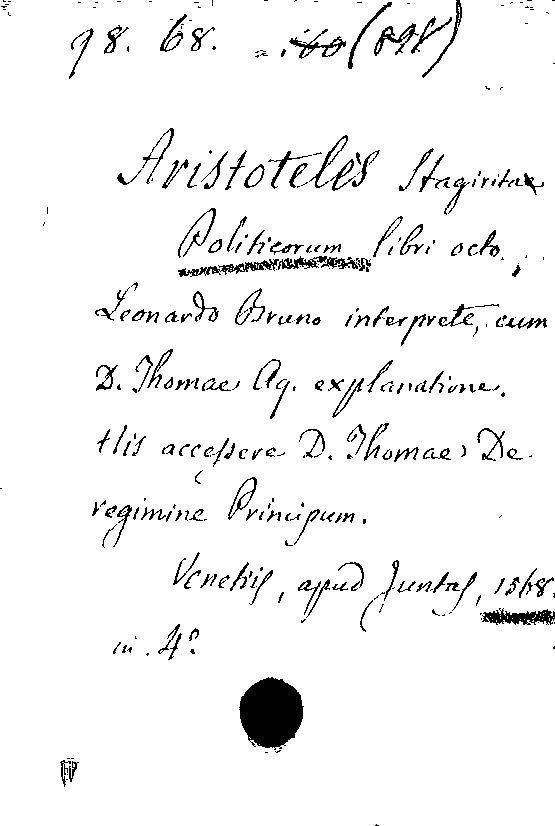 98. 68. (898)
Aristotelis Stagiritae
Politicorum libri octo,
Leonardo Bruno interprete, cum
D. Thomae Aq. explanatione.
His accessere D. Thomae De
regimine Principum.
Venetiis, apud Juntas, 1568.
in 4º